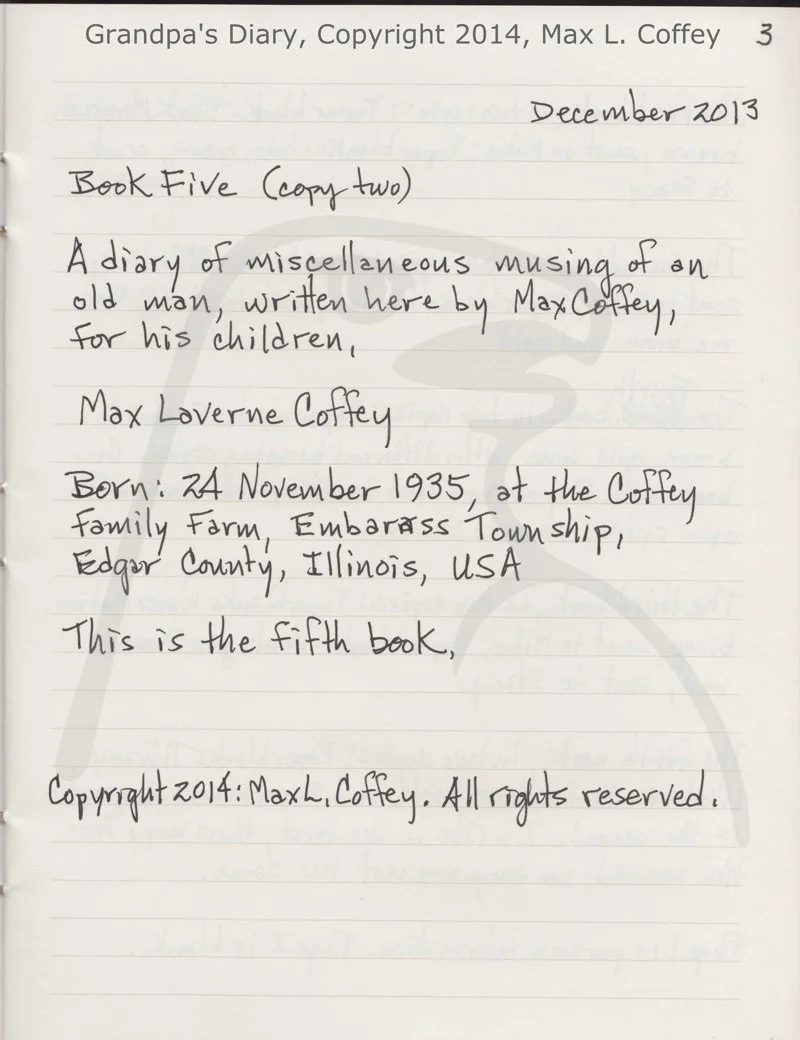 Grandpa's Diary, Copyright 2014, Max L. Coffey 3
December 2013
Book Five (copy two)
A diary of miscellaneous musing of an
old man, written here by Max Coffey,
for his children.
Max Laverne Coffey
Born: 24 November 1935, at the Coffey
family Farm, Embarass Township,
Edgar County, Illinois, USA
This is the fifth book.
Copyright 2014: Max L. Coffey. All rights reserved.